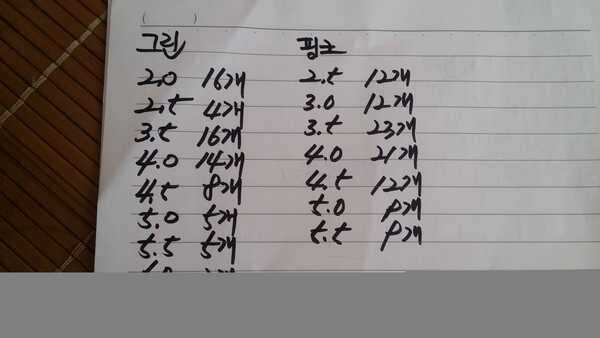 그린
2.0 16개
2.5 4개
3.5 16개
4.0 14개
4.5 8개
5.0 5개
5.5 5개
핑크
2.5 12개
3.0 12개
3.5 23개
4.0 21개
4.5 12개
5.0
5.5